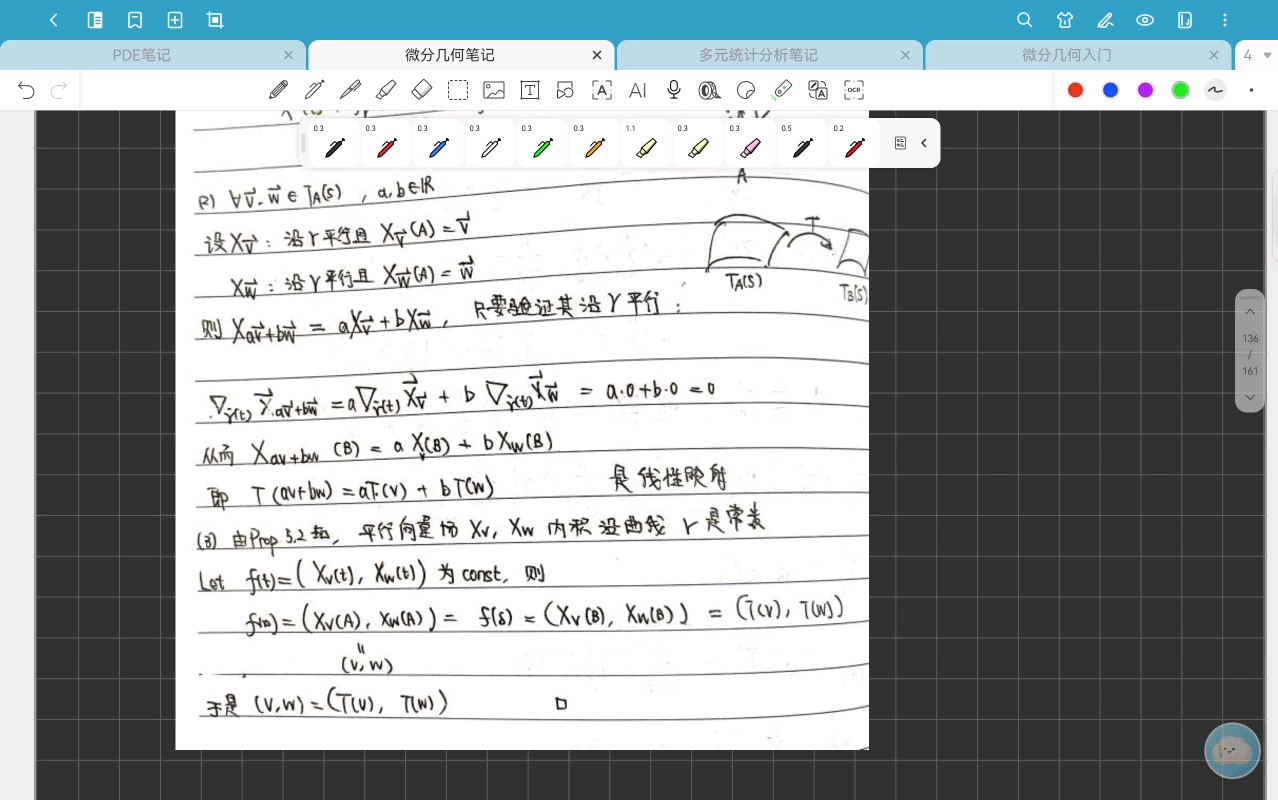 PDE笔记
微分几何笔记
多元统计分析笔记
微分几何入门
4
T
A
AI
OCR
0.3 0.3 0.3 0.3 0.3 0.3 1.1 0.3 0.3 0.5 0.2
A
(2) ∀v⃗, w⃗ ∈ T_A(S), a, b ∈ ℝ
设 X_v⃗ : 沿γ平行且 X_v⃗(A) = v⃗
X_w⃗ : 沿γ平行且 X_w⃗(A) = w⃗
T
T_A(S)
T_B(S)
则 X_{av⃗+bw⃗} = aX_v⃗ + bX_w⃗, 只要验证其沿γ平行:
∇_{γ̇(t)} X⃗_{av⃗+bw⃗} = a∇_{γ̇(t)} X⃗_v⃗ + b ∇_{γ̇(t)} X⃗_w⃗ = a·0+b·0 = 0
从而 X_{av+bw} (B) = a X_v(B) + b X_w(B)
即 T(av+bw) = aT(v) + bT(w) 是线性映射
(3) 由Prop 5.2知, 平行向量场 X_v, X_w 内积沿曲线γ是常数
Let f(t)=(X_v(t), X_w(t)) 为const, 则
f(0)=(X_v(A), X_w(A)) = f(δ) = (X_v(B), X_w(B)) = (T(v), T(w))
〃
(v, w)
于是 (v,w)=(T(v), T(w)) □
136
/
161